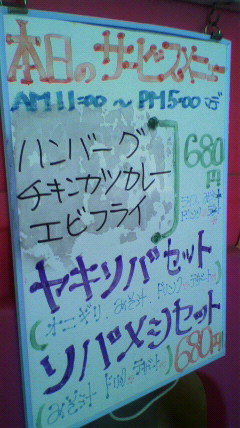 本日のサービスメニュー
AM11:00 ～ PM5:00 まで
ハンバーグ
チキンカツカレー
エビフライ
680円
ヤキソバセット
(オニギリ、みそ汁、ドリンク デザート)
ソバメシセット
(みそ汁 ドリンク デザート) 680円